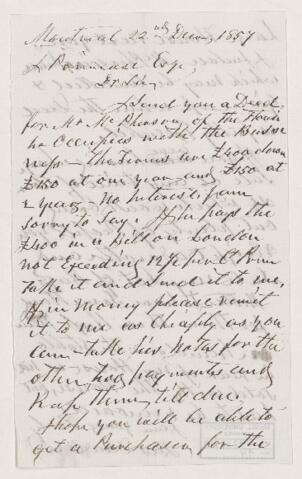 Montreal 22nd Decr 1857
J. Porteous Esqr
Dr Sir
I send you a Deed
for Mr McPherson of the House
he Occupies with the Busi
ness - the Terms are £400 down
£150 at one year and £150 at
2 years - No Interest I am
sorry to say. If he pays the
£400 in a Bill on London
not exceeding 12½ per Ct Prm
take it and send it to me,
If in Money please remit
it to me as Cheaply as you
can - take his Notes for the
other two payments and
Keep them till due.
I hope you will be able to
get a Purchaser for the